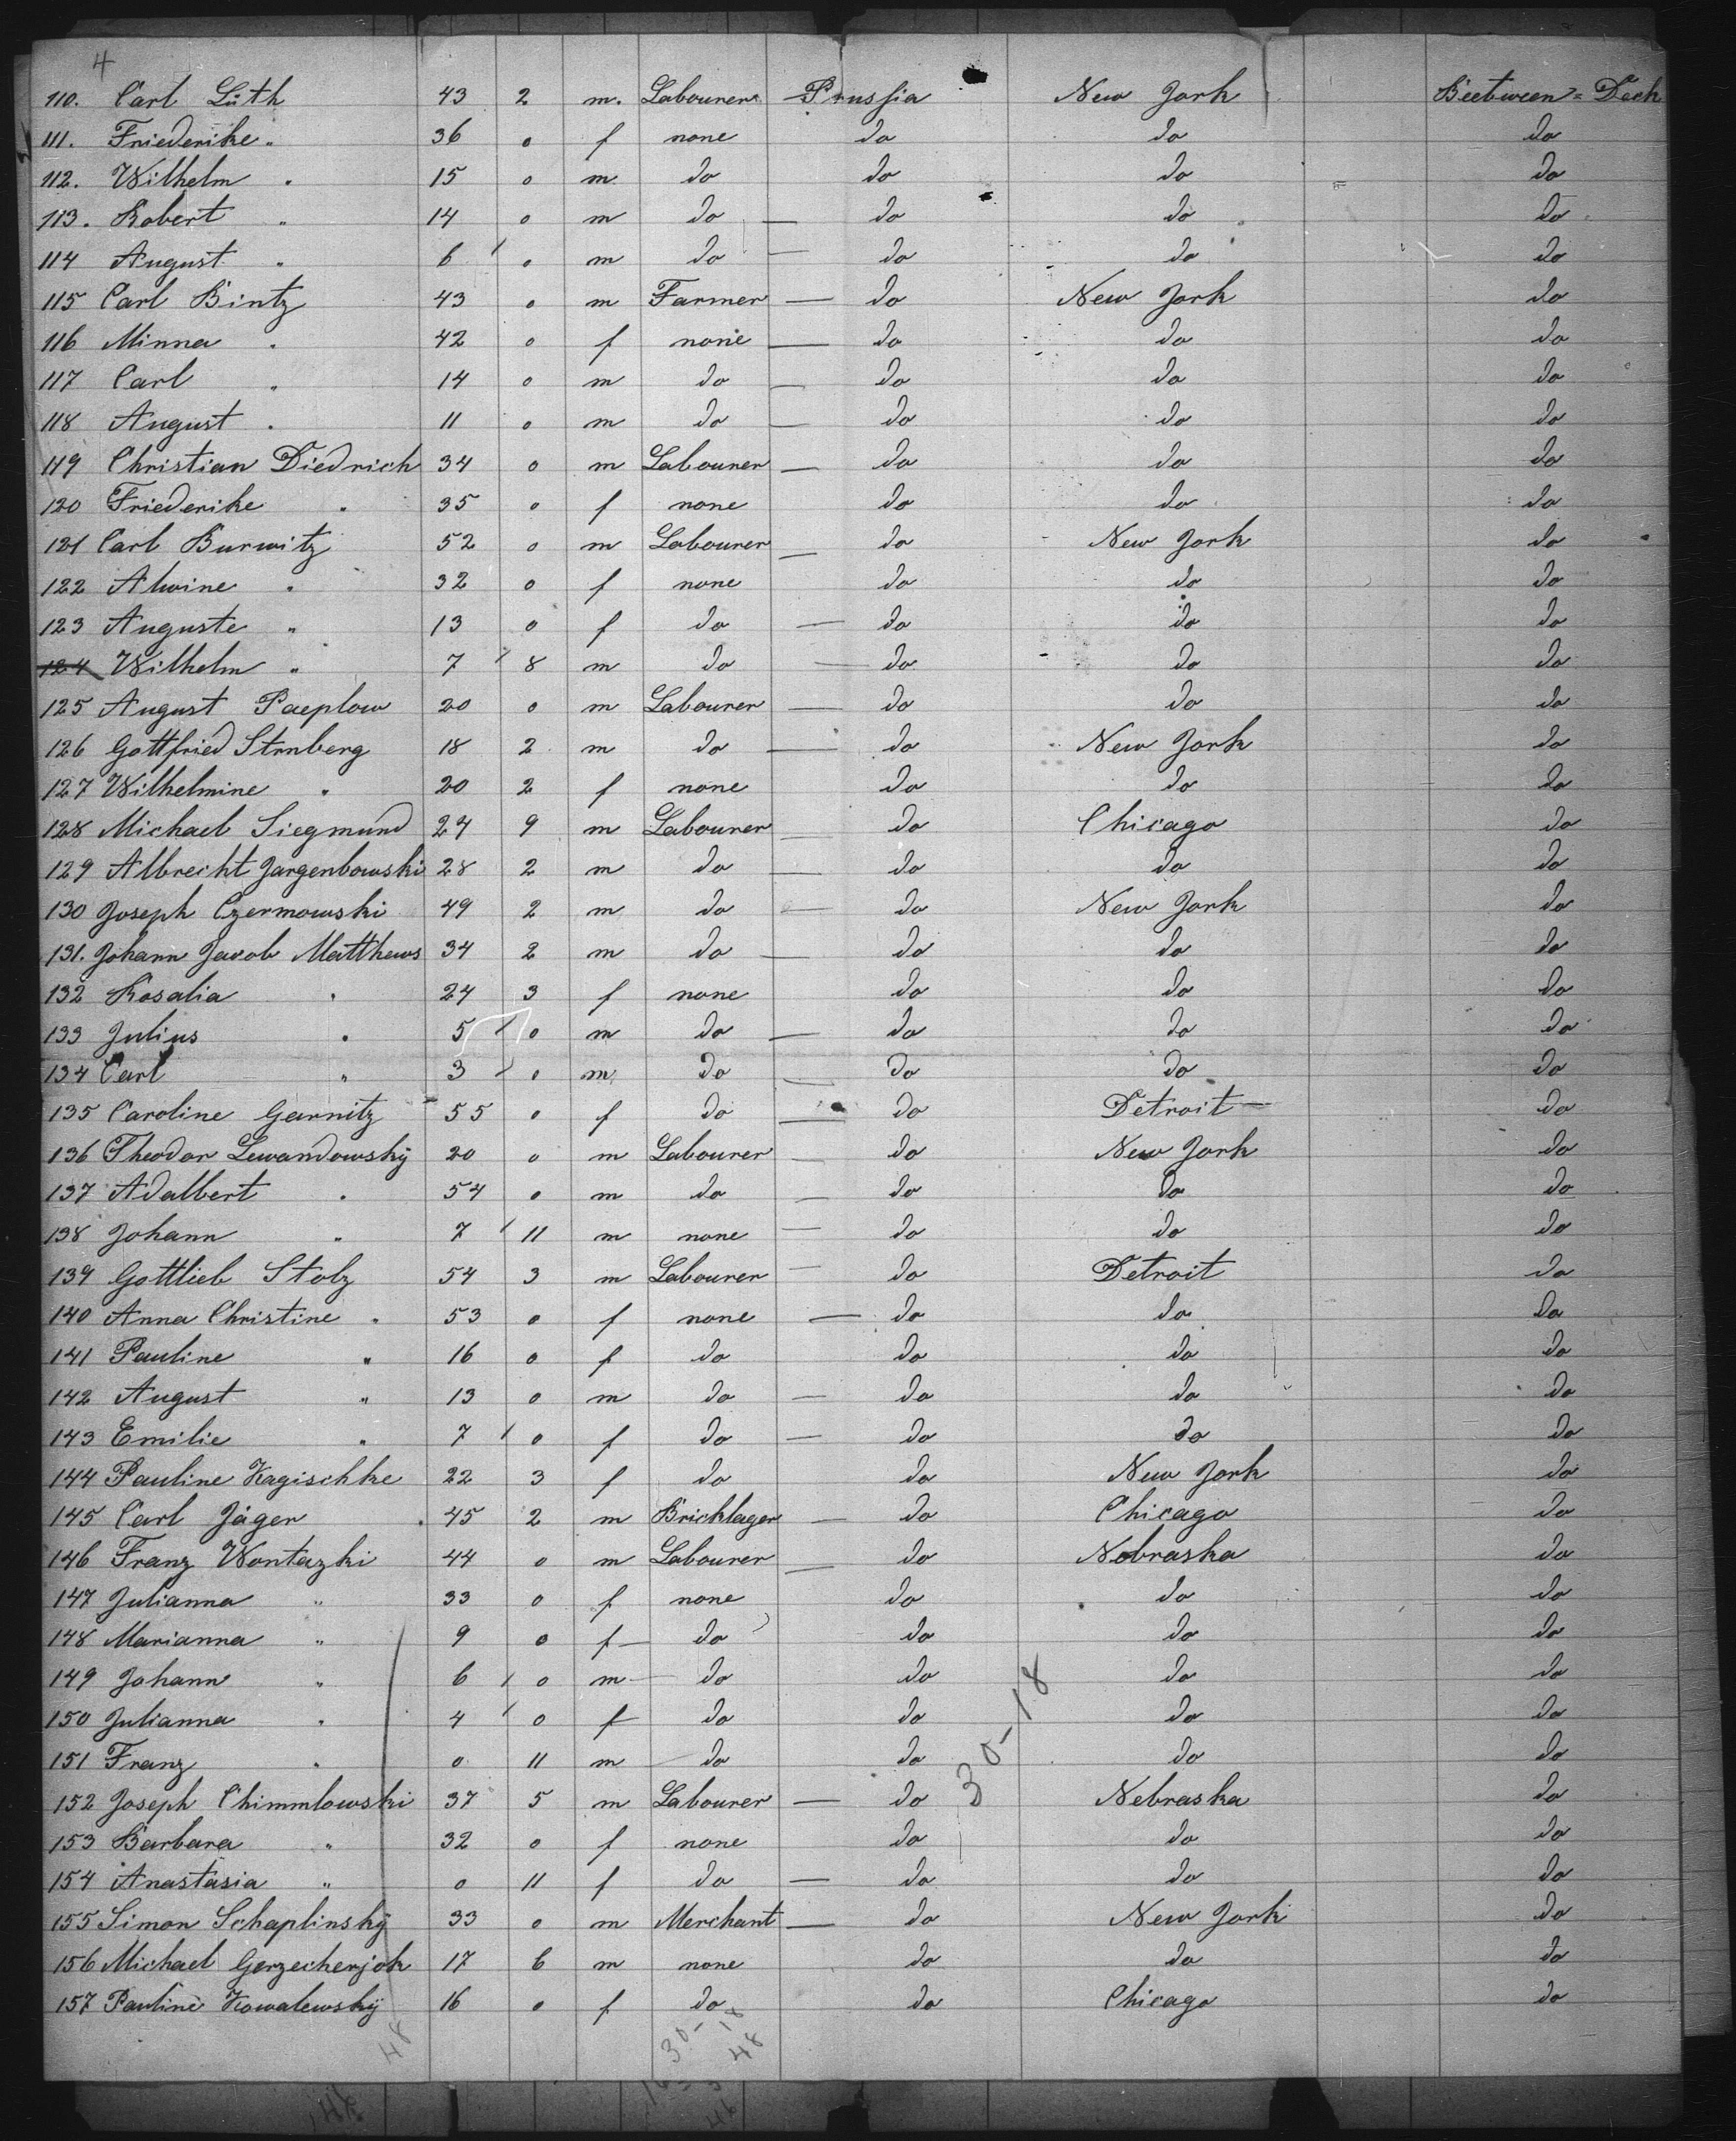 4
110. Carl Lüth 43 2 m. Labourer Prussia New York Beetween = Deck
111. Friederike " 36 0 f none do do do
112. Wilhelm " 15 0 m do do do do
113. Robert " 14 0 m do — do do do
114 August " 6 0 m do — do do do
115 Carl Bintz 43 0 m Farmer — do New York do
116 Minna " 42 0 f none — do do do
117 Carl " 14 0 m do — do do do
118 August " 11 0 m do — do do do
119 Christian Diedrich 34 0 m Labourer — do do do
120 Friederike " 35 0 f none do do do
121 Carl Burwitz 52 0 m Labourer — do New York do
122 Alwine " 32 0 f none do do do
123 Auguste " 13 0 f do — do do do
124 Wilhelm " 7 8 m do — do do do
125 August Paeplow 20 0 m Labourer — do do do
126 Gottfried Strnberg 18 2 m do — do New York do
127 Wilhelmine " 20 2 f none do do do
128 Michael Siegmund 24 9 m Labourer — do Chicago do
129 Albrecht Jargenbowski 28 2 m do — do do do
130 Joseph Czermowski 49 2 m do — do New York do
131. Johann Jacob Matthews 34 2 m do — do do do
132 Rosalia " 24 3 f none do do do
133 Julius " 5 0 m do — do do do
134 Carl " 3 0 m do — do do do
135 Caroline Garnitz 55 0 f do — do Detroit — do
136 Theodor Lewandowsky 20 0 m Labourer — do New York do
137 Adalbert " 54 0 m do — do do do
138 Johann " 7 11 m none — do do do
139 Gottlieb Stolz 54 3 m Labourer — do Detroit do
140 Anna Christine " 53 0 f none — do do do
141 Pauline " 16 0 f do do do do
142 August " 13 0 m do — do do do
143 Emilie " 7 0 f do — do do do
144 Pauline Kagischke 22 3 f do do New York do
145 Carl Jäger 45 2 m Bricklager — do Chicago do
146 Franz Wontazki 44 0 m Labourer — do Nebraska do
147 Julianna " 33 0 f none do do do
148 Marianna " 9 0 f do do do do
149 Johann " 6 0 m do do do do
150 Julianna " 4 0 f do do do do
151 Franz " 0 11 m do do do do
30-18
152 Joseph Chimmlowski 37 5 m Labourer — do Nebraska do
153 Barbara " 32 0 f none do do do
154 Anastasia " 0 11 f do — do do do
155 Simon Schaplinsky 33 0 m Merchant — do New York do
156 Michael Gerzecherjok 17 6 m none do do do
157 Pauline Kowalewsky 16 0 f do do Chicago do
48
30-18
48